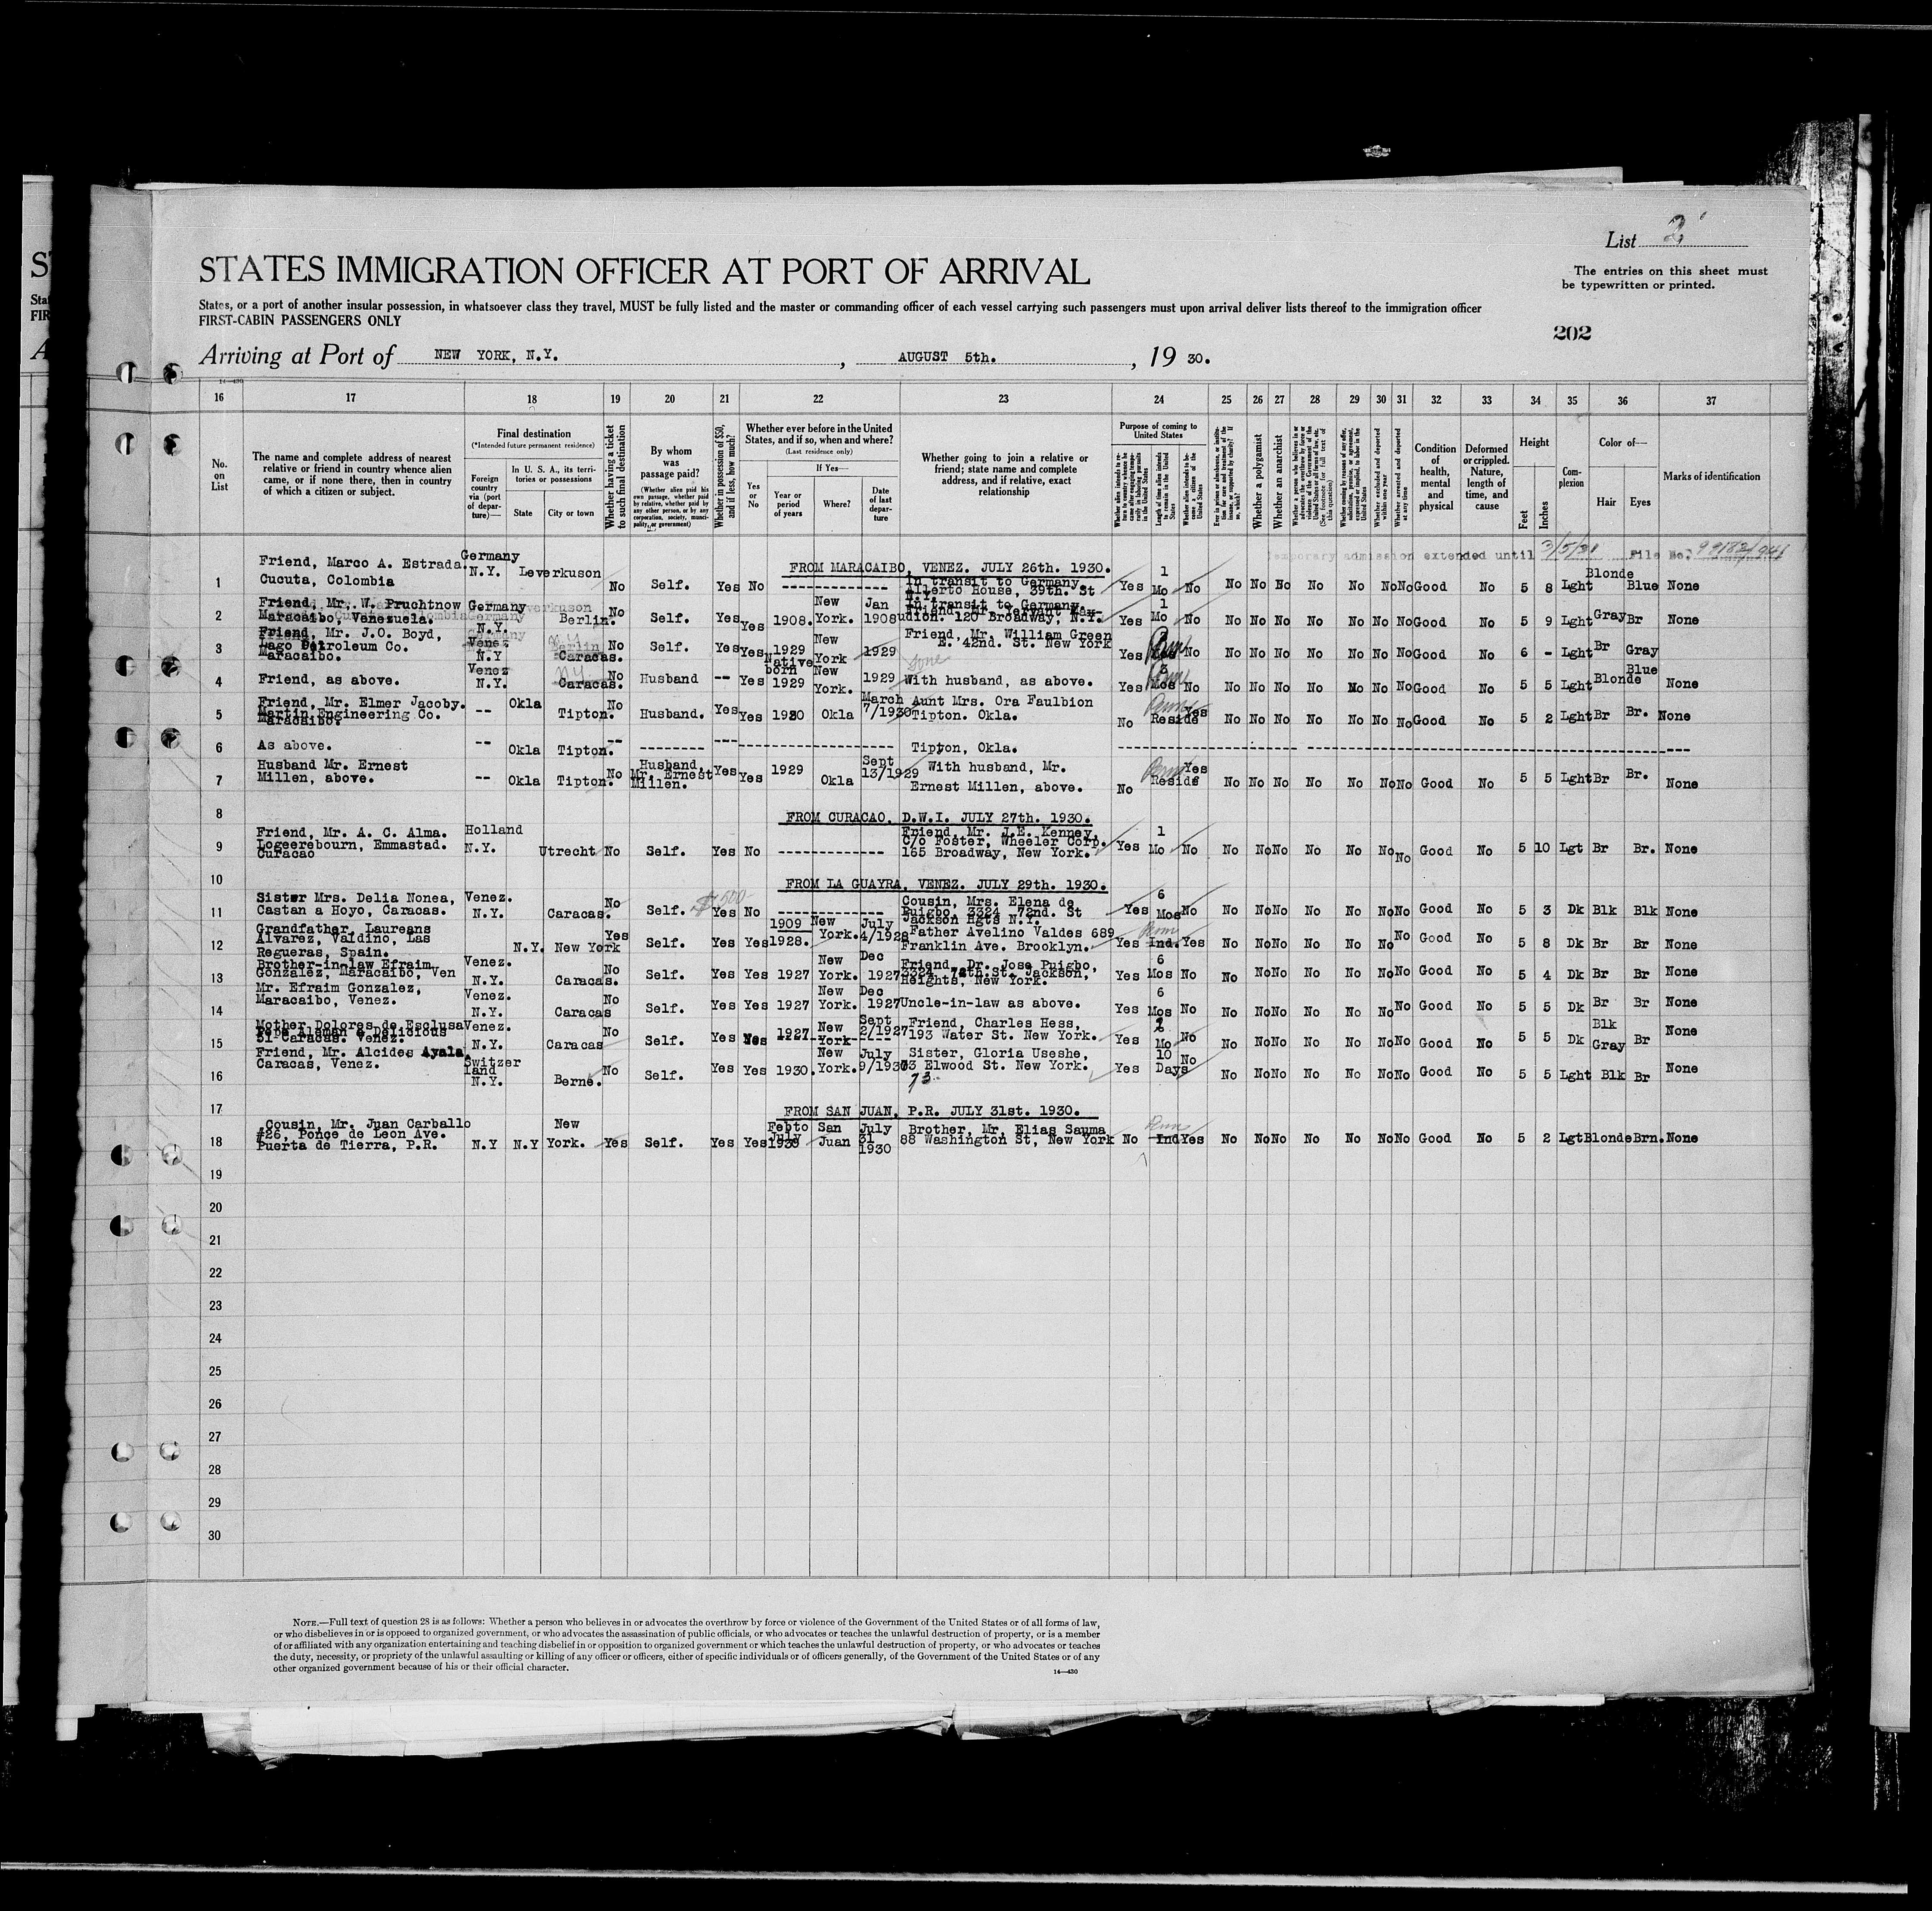 List 2
STATES IMMIGRATION OFFICER AT PORT OF ARRIVAL
The entries on this sheet must
be typewritten or printed.
States, or a port of another insular possession, in whatsoever class they travel, MUST be fully listed and the master or commanding officer of each vessel carrying such passengers must upon arrival deliver lists thereof to the immigration officer
FIRST-CABIN PASSENGERS ONLY
202
Arriving at Port of NEW YORK, N.Y., AUGUST 5th., 1930.
14-430
16 17 18 19 20 21 22 23 24 25 26 27 28 29 30 31 32 33 34 35 36 37
No. on List
The name and complete address of nearest relative or friend in country whence alien came, or if none there, then in country of which a citizen or subject.
Final destination
(*Intended future permanent residence)
Foreign country via (port of departure)—
In U. S. A., its territories or possessions
State
City or town
Whether having a ticket to such final destination
By whom was passage paid?
(Whether alien paid his own passage, whether paid by relative, whether paid by any other person, or by any corporation, society, municipality, or government)
Whether in possession of $50, and if less, how much?
Whether ever before in the United States, and if so, when and where?
(Last residence only)
Yes or No
If Yes—
Year or period of years
Where?
Date of last departure
Whether going to join a relative or friend; state name and complete address, and if relative, exact relationship
Purpose of coming to United States
Length of time alien intends to remain in the United States
Whether alien intends to become a citizen of the United States
Whether a polygamist
Whether an anarchist
Whether excluded and deported within one year
Whether arrested and deported at any time
Condition of health, mental and physical
Deformed or crippled. Nature, length of time, and cause
Height
Feet
Inches
Complexion
Color of—
Hair
Eyes
Marks of identification
Temporary admission extended until 3/5/31 File No.
FROM MARACAIBO, VENEZ. JULY 26th. 1930.
1 Friend, Marco A. Estrada. Cucuta, Colombia Germany N.Y. Leverkuson No Self. Yes No In transit to Germany Allerto House, 39th. St N.Y. Yes 1 Mo No No No No No No No No Good No 5 8 Lght Blonde Blue None
2 Friend, Mr. W. Pruchtnow Maracaibo, Venezuela. Germany N.Y. Berlin. No Self. Yes Yes 1908. New York. Jan 1908 In transit to Germany. 120 Broadway, N.Y. Yes 1 Mo No No No No No No No No Good No 5 9 Lght Gray Br None
3 Friend, Mr. J.O. Boyd, Lago Petroleum Co. Maracaibo. Venez N.Y Caracas. No Self. Yes Yes 1929 New York 1929 Friend, Mr. William Green E. 42nd. St. New York Yes No No No No No No No No Good No 6 - Lght Br Gray
4 Friend, as above. Venez N.Y. Caracas. No Husband -- Yes Native born 1929 New York. 1929 With husband, as above. Yes Mos No No No No No No No No Good No 5 5 Lght Blonde Blue None
5 Friend, Mr. Elmer Jacoby. Martin Engineering Co. Maracaibo. -- Okla Tipton. No Husband. Yes Yes 1930 Okla March 7/1930 Aunt Mrs. Ora Faulbion Tipton. Okla. No Perm Reside Yes No No No No No No No Good No 5 2 Lght Br Br. None
6 As above. -- Okla Tipton. -- -------- --- Tipton, Okla.
7 Husband Mr. Ernest Millen, above. -- Okla Tipton. No Husband, Mr. Ernest Millen. Yes Yes 1929 Okla Sept 13/1929 With husband, Mr. Ernest Millen, above. No Perm Reside Yes No No No No No No No Good No 5 5 Lght Br Br. None
8 FROM CURACAO, D.W.I. JULY 27th. 1930.
9 Friend, Mr. A. C. Alma. Logeerebourn, Emmastad. Curacao Holland N.Y. Utrecht No Self. Yes No Friend, Mr. J.E. Kenney, C/o Foster, Wheeler Corp. 165 Broadway, New York. Yes 1 Mo No No No No No No No No Good No 5 10 Lgt Br Br. None
10 FROM LA GUAYRA, VENEZ. JULY 29th. 1930.
11 Sister Mrs. Delia Nonea, Castan a Hoyo, Caracas. Venez. N.Y. Caracas. No Self. $1,500 Yes No Cousin, Mrs. Elena de Puigbo. 3324 72nd. St Jackson Hgts N.Y. Yes 6 Mos No No No No No No No No Good No 5 3 Dk Blk Blk None
12 Grandfather, Laureans Alvarez, Valdino, Las Regueras, Spain. N.Y. New York Yes Self. Yes Yes 1909 1928. New York. July 4/1928 Father Avelino Valdes 689 Franklin Ave. Brooklyn. Yes Perm Ind. Yes No No No No No No No Good No 5 8 Dk Br Br None
13 Brother-in-law Efraim Gonzalez, Maracaibo, Ven Venez. N.Y. Caracas. No Self. Yes Yes 1927 New York. Dec 1927 Friend, Dr. Jose Puigbo, 3324, 72th. St. Jackson, Heights, New York. Yes 6 Mos No No No No No No No No Good No 5 4 Dk Br Br None
14 Mr. Efraim Gonzalez, Maracaibo, Venez. Venez. N.Y. Caracas No Self. Yes Yes 1927 New York. Dec 1927 Uncle-in-law as above. Yes 6 Mos No No No No No No No No Good No 5 5 Dk Br Br None
15 Mother Dolores de Esclusa Pepe Aleman a Delicious 51 Caracas. Venez. Venez. N.Y. Caracas No Self. Yes Yes 1927 New York Sept 2/1927 Friend, Charles Hess, 193 Water St. New York. Yes 2 Mo No No No No No No No No Good No 5 5 Dk Blk Gray Br None
16 Friend, Mr. Alcides Ayala. Caracas, Venez. Switzer land N.Y. Berne. No Self. Yes Yes 1930. New York. July 9/1930 Sister, Gloria Useshe, 73 Elwood St. New York. 73 Yes 10 Days No No No No No No No No Good No 5 5 Lght Blk Br None
17 FROM SAN JUAN, P.R. JULY 31st. 1930.
18 Cousin, Mr. Juan Carballo #26, Ponce de Leon Ave. Puerta de Tierra, P.R. N.Y N.Y New York. Yes Self. Yes Yes Feb to July 1930 San Juan July 31 1930 Brother, Mr. Elias Sauma 88 Washington St, New York No Perm Ind Yes No No No No No No No Good No 5 2 Lgt Blonde Brn. None
19
20
21
22
23
24
25
26
27
28
29
30
NOTE.—Full text of question 28 is as follows: Whether a person who believes in or advocates the overthrow by force or violence of the Government of the United States or of all forms of law,
or who disbelieves in or is opposed to organized government, or who advocates the assassination of public officials, or who advocates or teaches the unlawful destruction of property, or is a member
of or affiliated with any organization entertaining and teaching disbelief in or opposition to organized government or which teaches the unlawful destruction of property, or who advocates or teaches
the duty, necessity, or propriety of the unlawful assaulting or killing of any officer or officers, either of specific individuals or of officers generally, of the Government of the United States or of any
other organized government because of his or their official character.
14—430